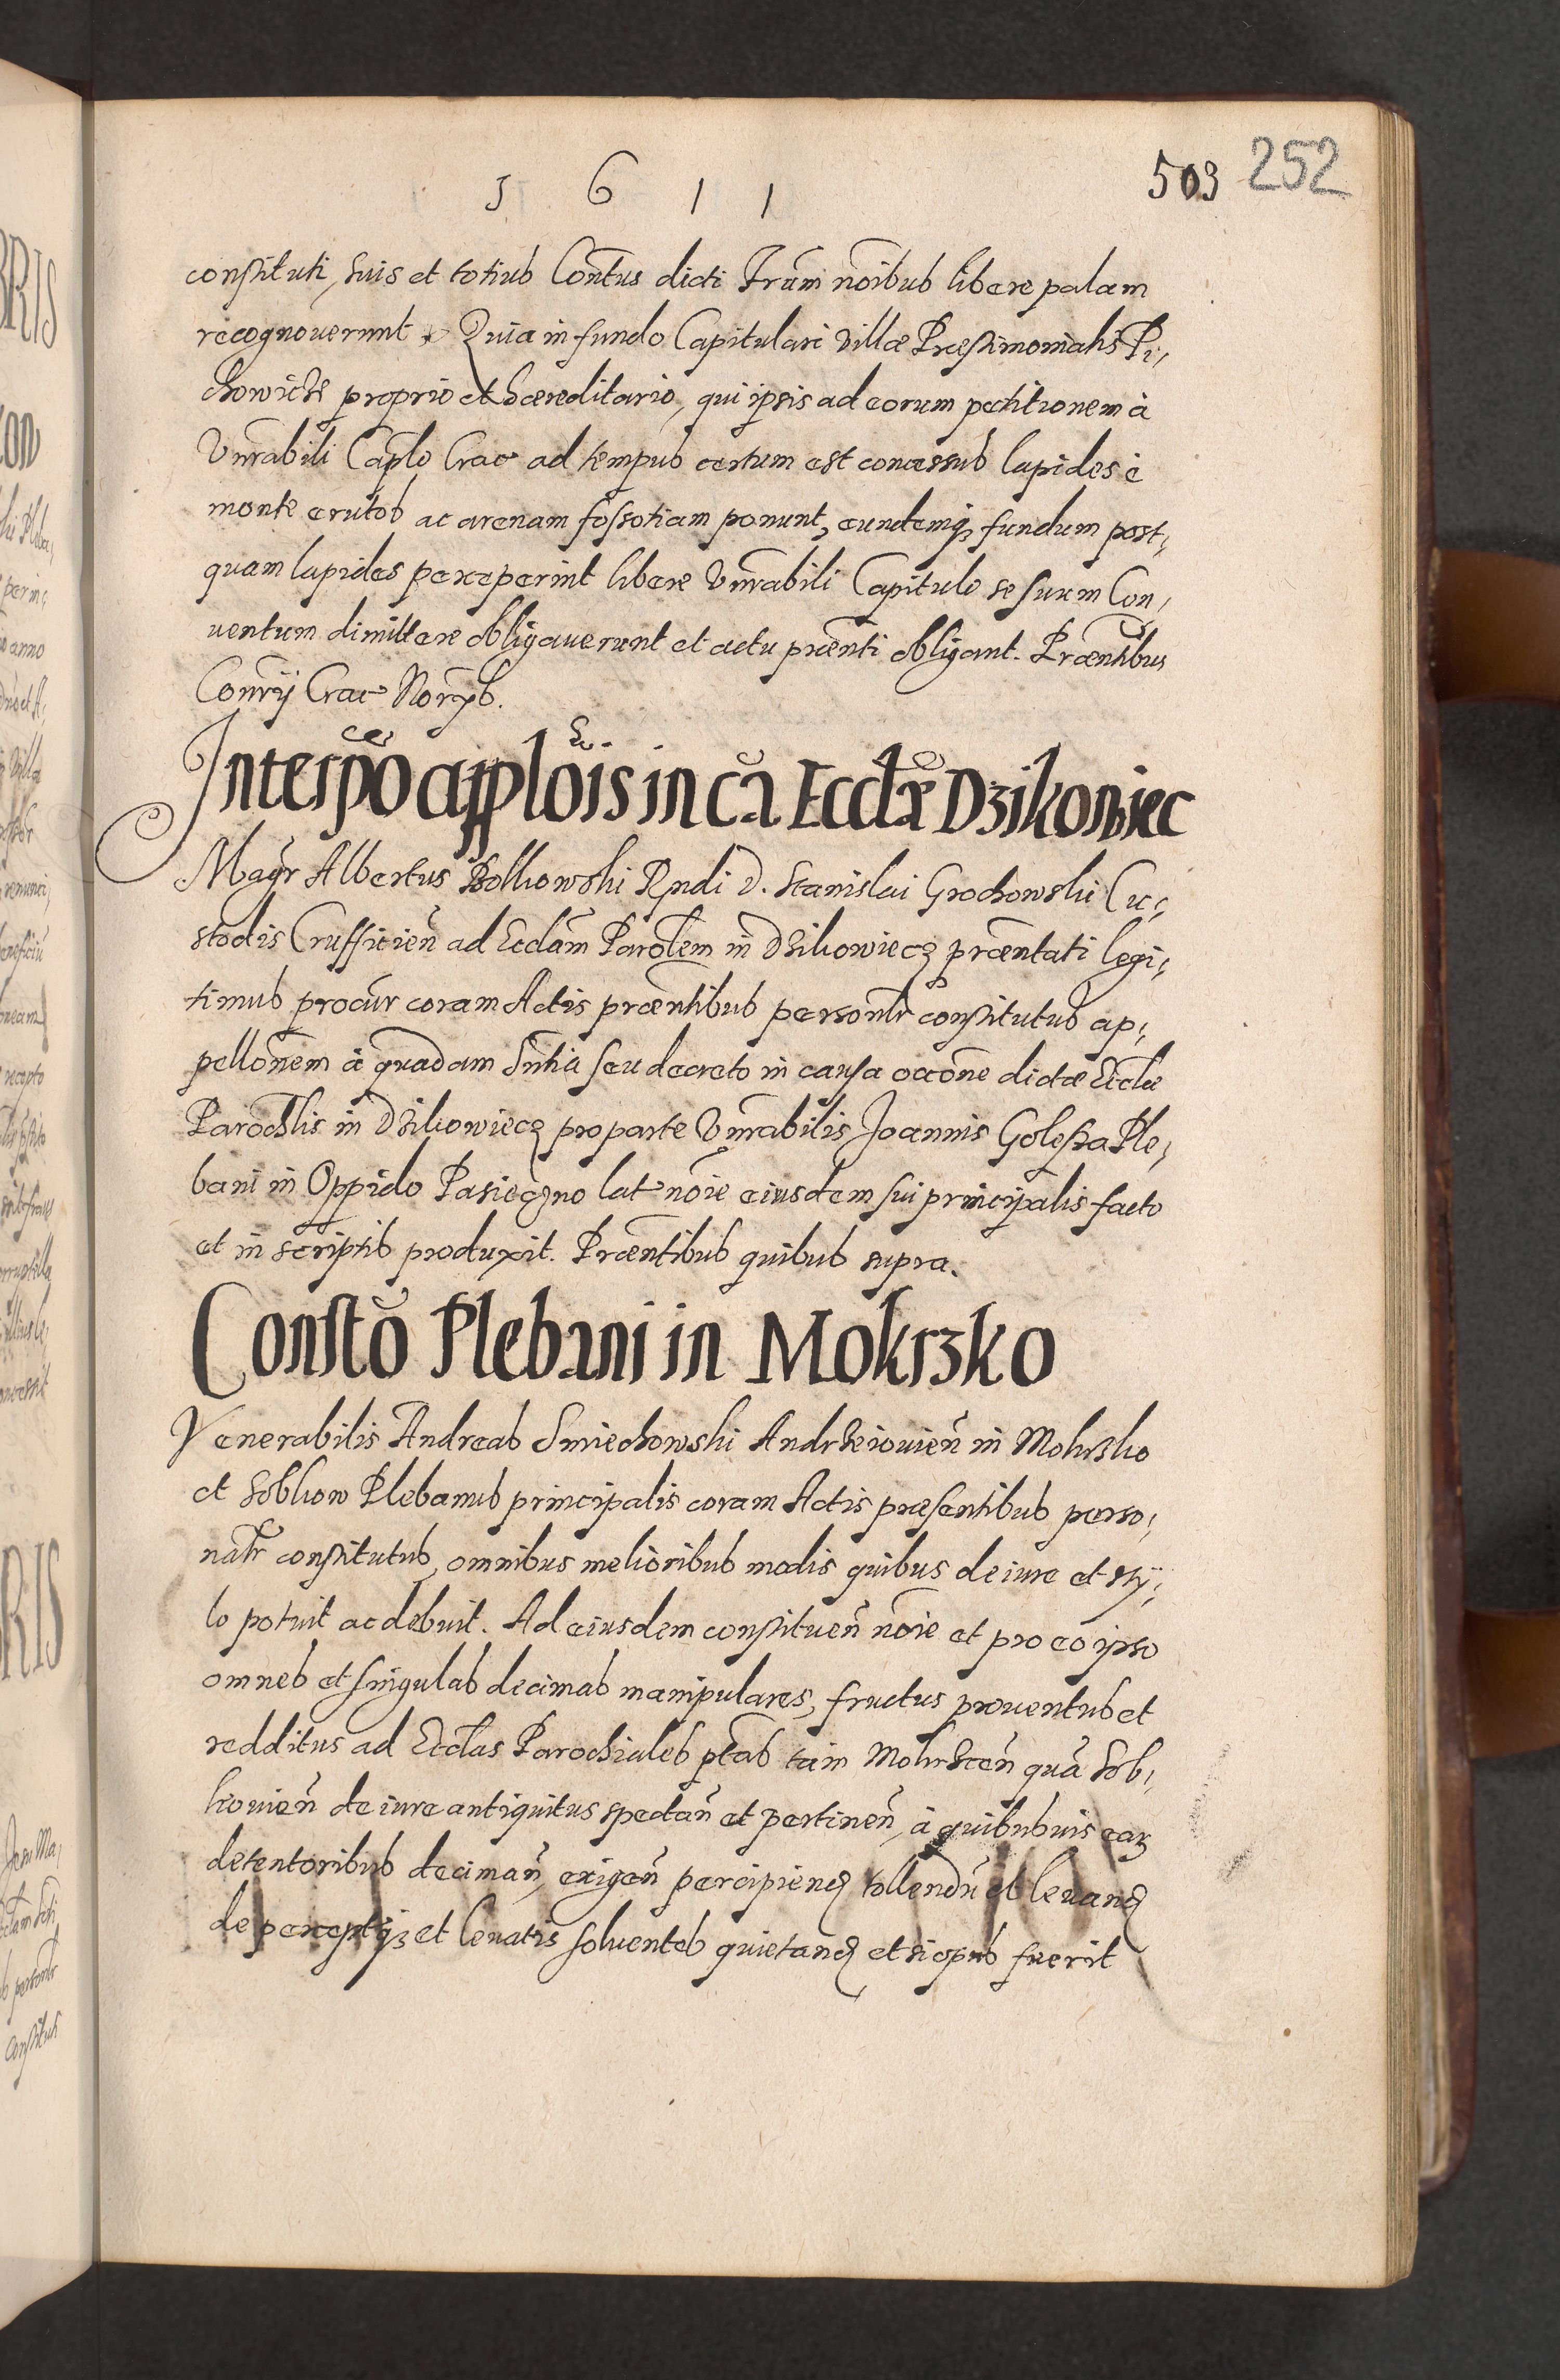 1 6 1 1
503 252
constituti, suis et totius Contus dicti Frum noibus libere palam
recognouerunt Quia in fundo Capitulari villæ Præstimonialis Pi,
chowicze proprio et hæreditario, qui ipsis ad eorum petitionem à
Vnrabili Caplo Crac ad tempus certum est concessus lapides è
monte erutos ac arenam fossotiam ponunt, eundemq fundum post,
quam lapides perceperint libere Vnrabili Capitulo se suum Con,
uentum dimittere obligauerunt et actu præenti obligant. Præntibus
Conrij Crac Norys.
Interpo applois in ca Ecclæ Dzikowiec
Magr Albertus Rndi D. Stanislai Grochowski Cu,
stodis Crussicien ad Ecclam Parolem in Dzikowiecz præntati legi,
timus procur coram Actis præntibus personlr constitutus ap,
pellonem à quadam Sntia seu decreto in causa occone dictæ Ecclæ
Parochlis in Dzikowiecz pro parte Vnrabilis Joannis Golesza Ple,
bani in Oppido Pasieczno lat noie eiusdem sui principalis facto
et in scriptis produxit. Præntibus quibus supra.
Consto Plebani in Mokrzko
Venerabilis Andreas Smiechowski Andrzeiouien in Mokrzko
et Sobkow Plebanus principalis coram Actis præsentibus perso,
nalr constitutus, omnibus melioribus modis quibus de iure et sty,
lo potuit ac debuit. Ad eiusdem constituen noie et pro eo ipso
omnes et singulas decimas manipulares, fructus prouentus et
redditus ad Ecclas Parochiales ptas tam Mokrzcen qua Sob,
kouien de iure antiquitus spectan et pertinen, à quibusuis earz
detentoribus deciman, exigen percipiend tollendn et leuand
de perceptisqz et leuatis soluentes quietand et si opus fuerit